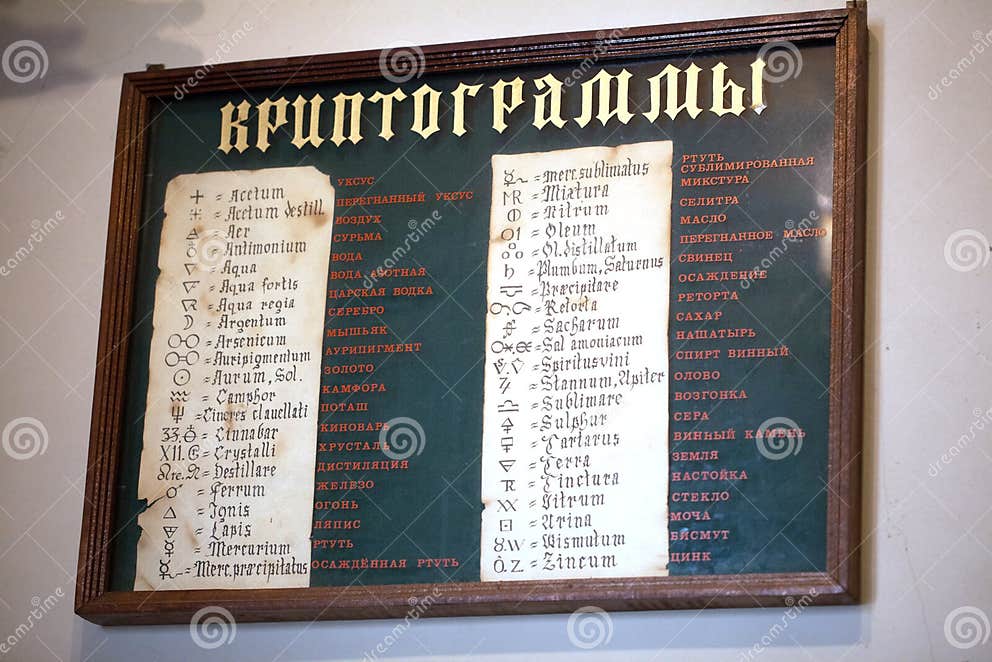 КРИПТОГРАММЫ
= Acetum
= Acetum destill
= Aer
= Antimonium
= Aqua
= Aqua fortis
= Aqua regia
= Argentum
= Arsenicum
= Auripigmentum
= Aurum, Sol.
= Camphor
= Cineres clauellati
= Cinnabar
= Crystalli
= Destillare
= Ferrum
= Ignis
= Lapis
= Mercurium
= Merc. præcipitatus
УКСУС
ПЕРЕГНАННЫЙ УКСУС
ВОЗДУХ
СУРЬМА
ВОДА
ВОДА АЗОТНАЯ
ЦАРСКАЯ ВОДКА
СЕРЕБРО
МЫШЬЯК
АУРИПИГМЕНТ
ЗОЛОТО
КАМФОРА
ПОТАШ
КИНОВАРЬ
ХРУСТАЛЬ
ДИСТИЛЯЦИЯ
ЖЕЛЕЗО
ОГОНЬ
ЛЯПИС
РТУТЬ
ОСАЖДЁННАЯ РТУТЬ
= merc. sublimatus
= Mixtura
= Nitrum
= Oleum
= Ol. distillatum
= Plumbum, Saturnus
= Præcipitare
= Retorta
= Sacharum
= Sal amoniacum
= Spiritus vini
= Stannum, Jupiter
= Sublimare
= Sulphur
= Tartarus
= Terra
= Tinctura
= Vitrum
= Urina
= Wismutum
= Zincum
РТУТЬ
СУБЛИМИРОВАННАЯ
МИКСТУРА
СЕЛИТРА
МАСЛО
ПЕРЕГНАННОЕ МАСЛО
СВИНЕЦ
ОСАЖДЕНИЕ
РЕТОРТА
САХАР
НАШАТЫРЬ
СПИРТ ВИННЫЙ
ОЛОВО
ВОЗГОНКА
СЕРА
ВИННЫЙ КАМЕНЬ
ЗЕМЛЯ
НАСТОЙКА
СТЕКЛО
МОЧА
ВИСМУТ
ЦИНК
dreamstime